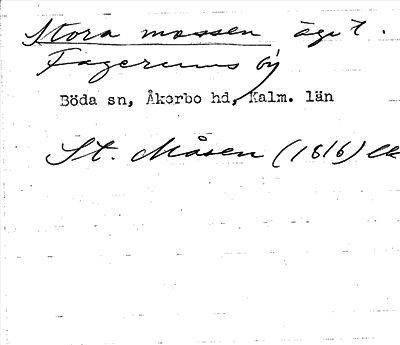 Stora mossen äga.
Fagerrums by
Böda sn, Åkerbo hd, Kalm. län
St. Måsen (1816) ek